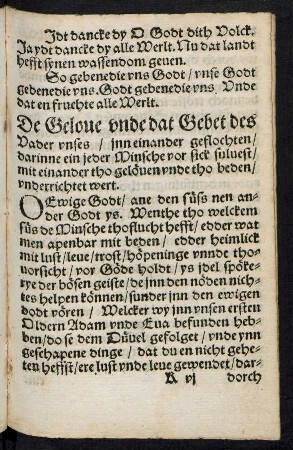 Jdt dancke dy O Godt dith Volck.
Ja ydt dancke dy alle Werlt. Nu dat landt
hefft synen wassendom geuen.
So gebenedie vns Godt / vnse Godt
gebenedie vns. Godt gebenedie vns. Vnde
dat en fruchte alle Werlt.
De Geloue vnde dat Gebet des
Vader vnses / jnn einander geflochten /
darinne ein jeder Minsche vor sick suluest /
mit einander tho gelöuen vnde tho beden /
vnderrichtet wert.
O Ewige Godt / ane den süss nen an-
der Godt ys. Wenthe tho welckem
süs de Minsche thoflucht hefft / edder wat
men apenbar mit beden / edder heimlick
mit lust / leue / trost / höpeninge vnnde tho-
uorsicht / vor Göde holdt / ys jdel spöke-
rye der bösen geiste / de jnn den nöden nich-
tes helpen können / sunder jnn den ewigen
dodt vören / Welcker wy jnn vnsen ersten
Oldern Adam vnde Eua befunden heb-
ben / do se dem Düuel gefolget / vnde ynn
geschapene dinge / dat du en nicht gehe-
ten heffst / ere lust vnde leue gewendet / dar-
K vj dorch